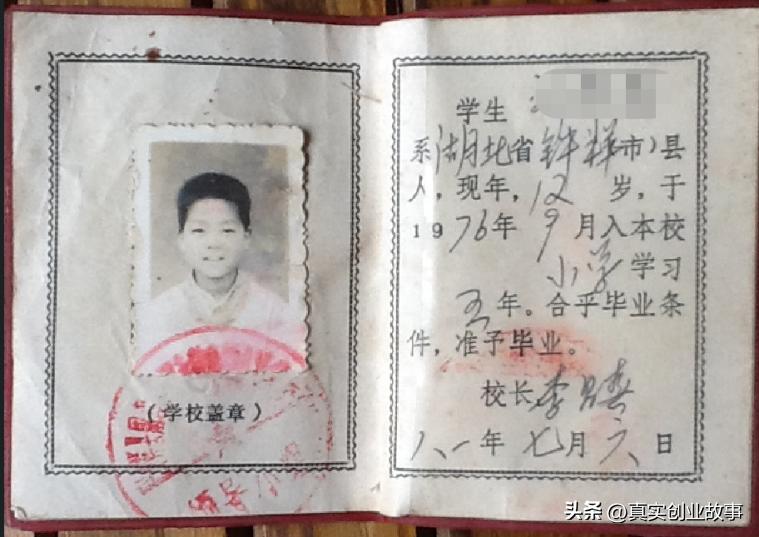 (学校盖章)
学生
系湖北省钟祥市)县
人，现年，12岁，于
1976年9月入本校
小学学习
五年。合乎毕业条
件，准予毕业。
校长李
八一年七月六日
头条 @真实创业故事